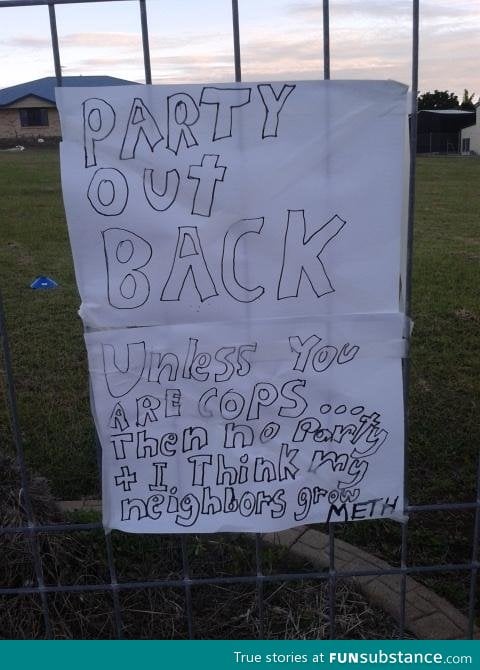 PARTY
OUt
BACK
Unless You
ARE COPS...
Then no Party
+ I Think my
neighbors grow
METH
True stories at FUNsubstance.com